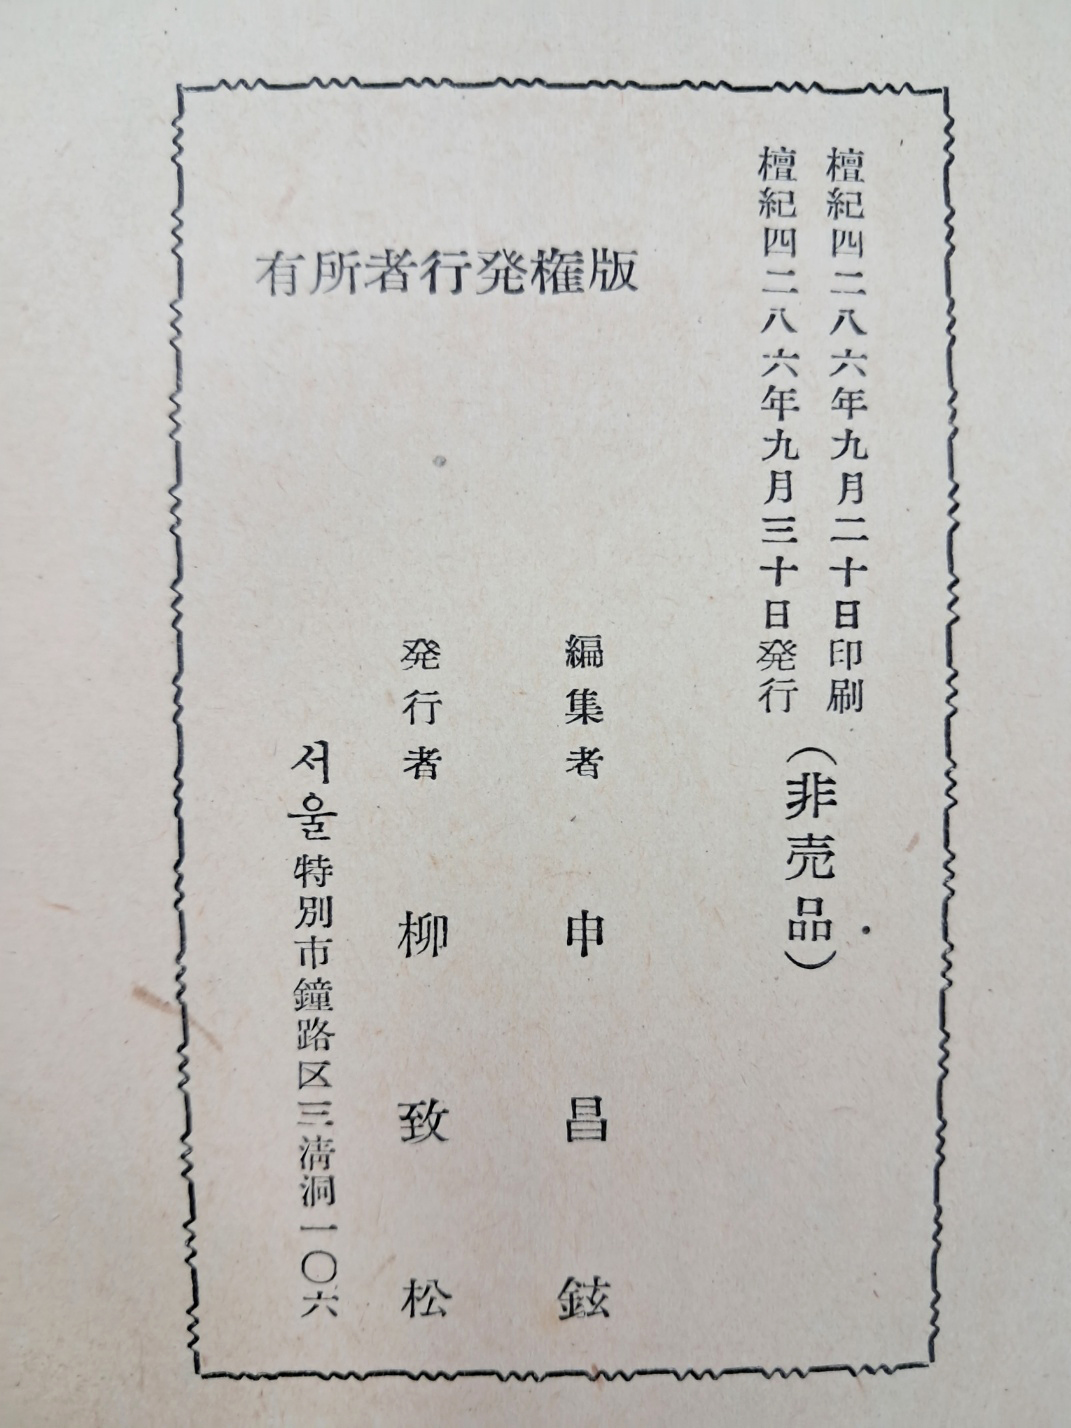 檀紀四二八六年九月二十日印刷
檀紀四二八六年九月三十日発行
(非売品)
版権発行者所有
編集者 申昌鉉
発行者 柳致松
서울特別市鐘路区三淸洞一〇六